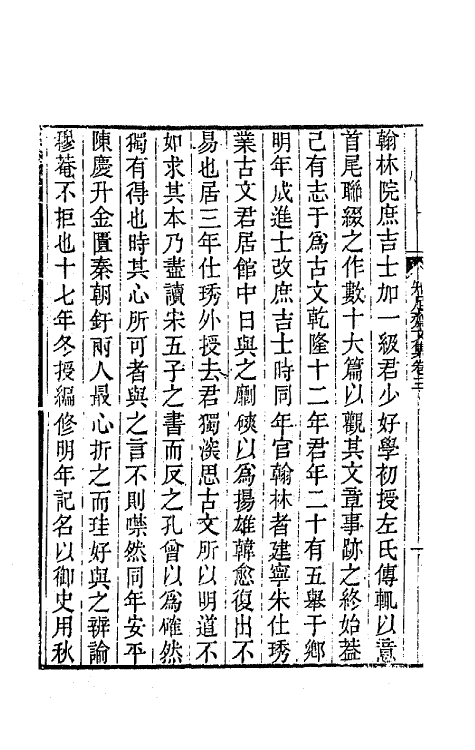 翰林院庶吉士加一級君少好學初授左氏傳輒以意
首尾聯綴之作數十大篇以觀其文章事跡之終始葢
己有志于爲古文乾隆十二年君年二十有五舉于鄉
明年成進士改庶吉士時同年官翰林者建寧朱仕琇
業古文君居館中日與之劘磢以爲揚雄韓愈復出不
易也居三年仕琇外授去君獨湥思古文所以明道不
如求其本乃盡讀宋五子之書而反之孔曾以爲確然
獨有得也時其心所可者與之言不則噤然同年安平
陳慶升金匱秦朝釪兩人最心折之而珪好與之辨論
穆菴不拒也十七年冬授編修明年記名以御史用秋
知足齋文集卷三